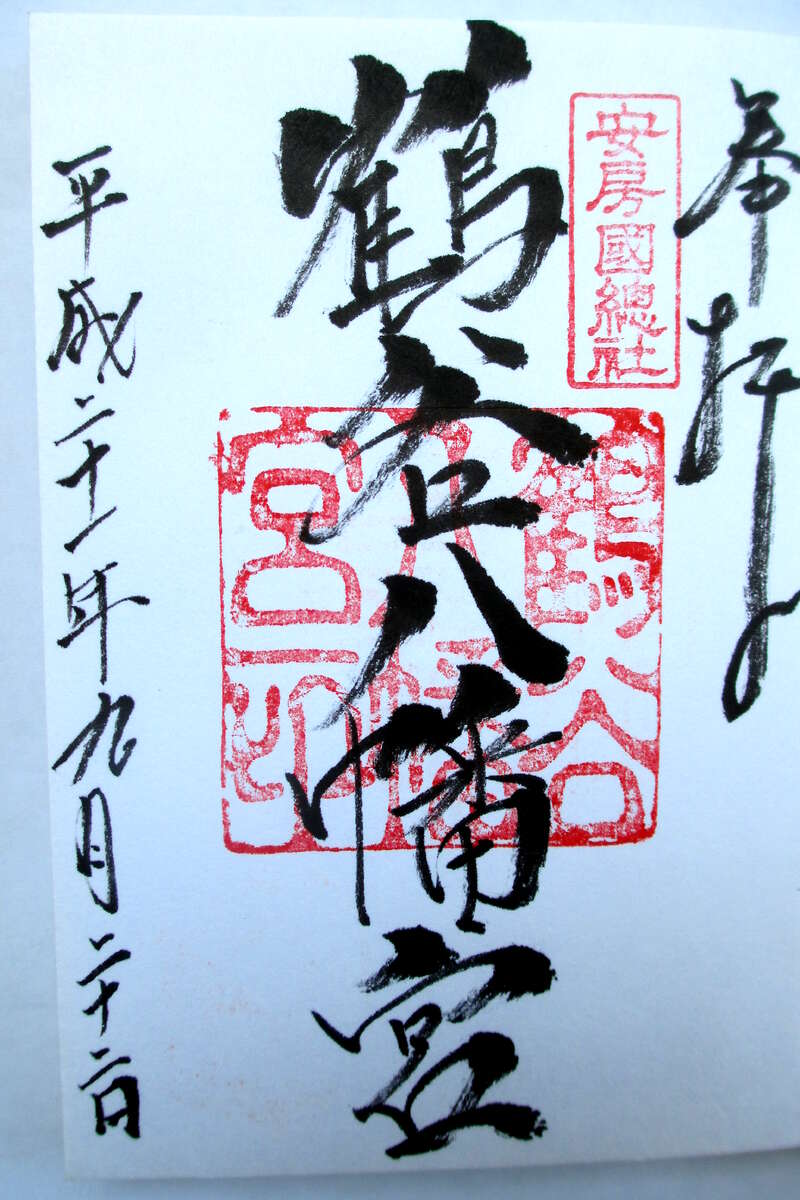 奉拝
安房國總社
鶴谷八幡宮
鶴谷八幡宮印
平成二十一年九月二十二日